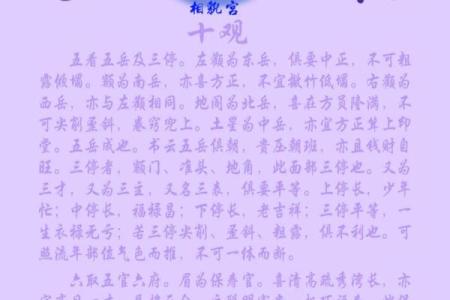 相貌宫
十观
五看五岳及三停。左颧为东岳，俱要中正，不可粗
露倾塌。额为南岳，亦喜方正，不宜撇竹低塌。右颧为
西岳，亦与左颧相同。地阁为北岳，喜在方员隆满，不
可尖削歪斜，卷窍兜上。土星为中岳，亦宜方正耸上印
堂。五岳成也。书云五岳俱朝，贵压朝班，亦且钱财自
旺。三停者，额门、准头、地角，此面部三停也。又为
三才，又为三主，又名三表，俱要平等。上停长，少年
忙；中停长，福禄昌；下停长，老吉祥；三停平等，一
生衣禄无亏；若三停尖削、歪斜、粗露，俱不利也。可
照流年部位气色而推，不可一体而断。
六取五官六府。眉为保寿官。喜清高疏秀湾长，亦